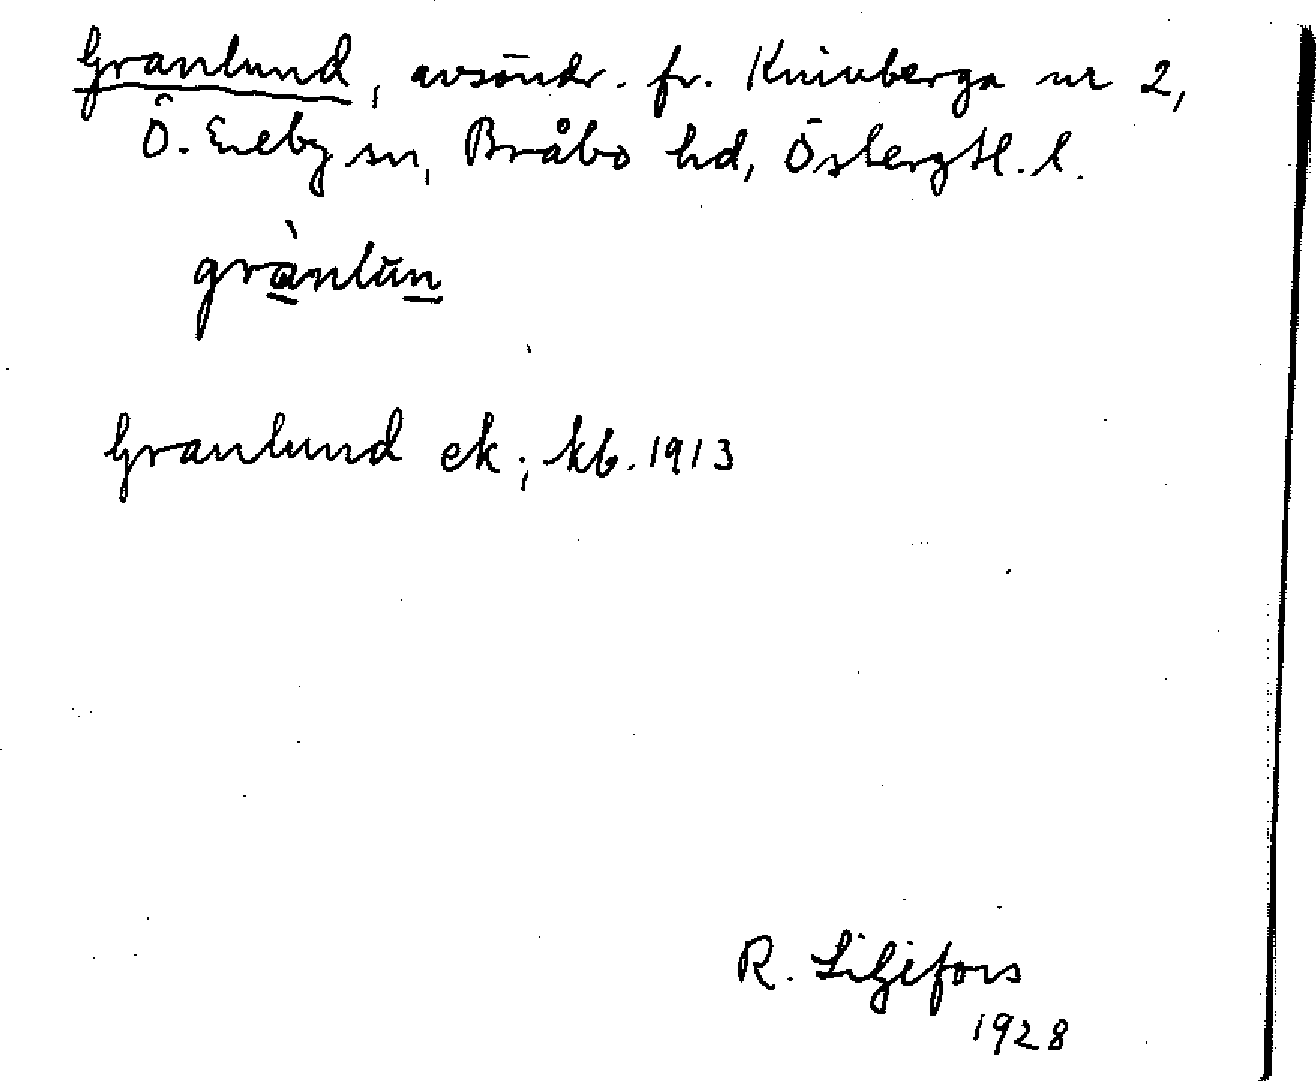 Granlund, avsöndr. fr. Knivberga nr 2,
Ö. Eneby sn, Bråbo hd, Östergtl. l.
grànlŭn
Granlund ek; kb. 1913
R. Liljefors
1928